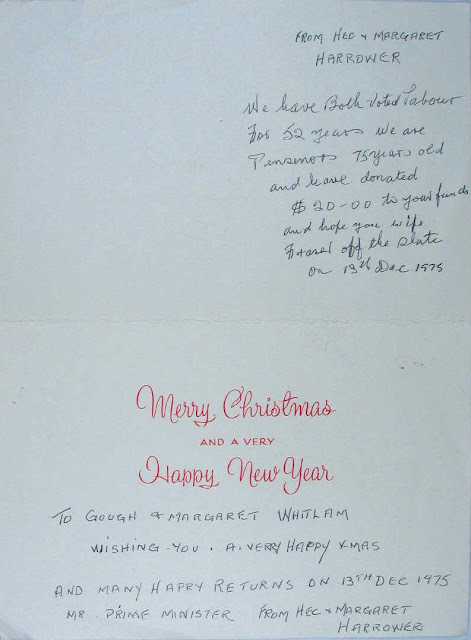 FROM HEC & MARGARET
HARROWER
We have Both Voted Labour
For 52 years We are
Pensenors 75 years old
and have donated
$20-00 to your funds
and hope you wife
Fraser off the slate
on 13th Dec 1975
Merry Christmas
AND A VERY
Happy New Year
TO GOUGH & MARGARET WHITLAM
WISHING.YOU. A.VERY HAPPY XMAS
AND MANY HAPPY RETURNS ON 13TH DEC 1975
MR PRIME MINISTER FROM HEC & MARGARET
HARROWER